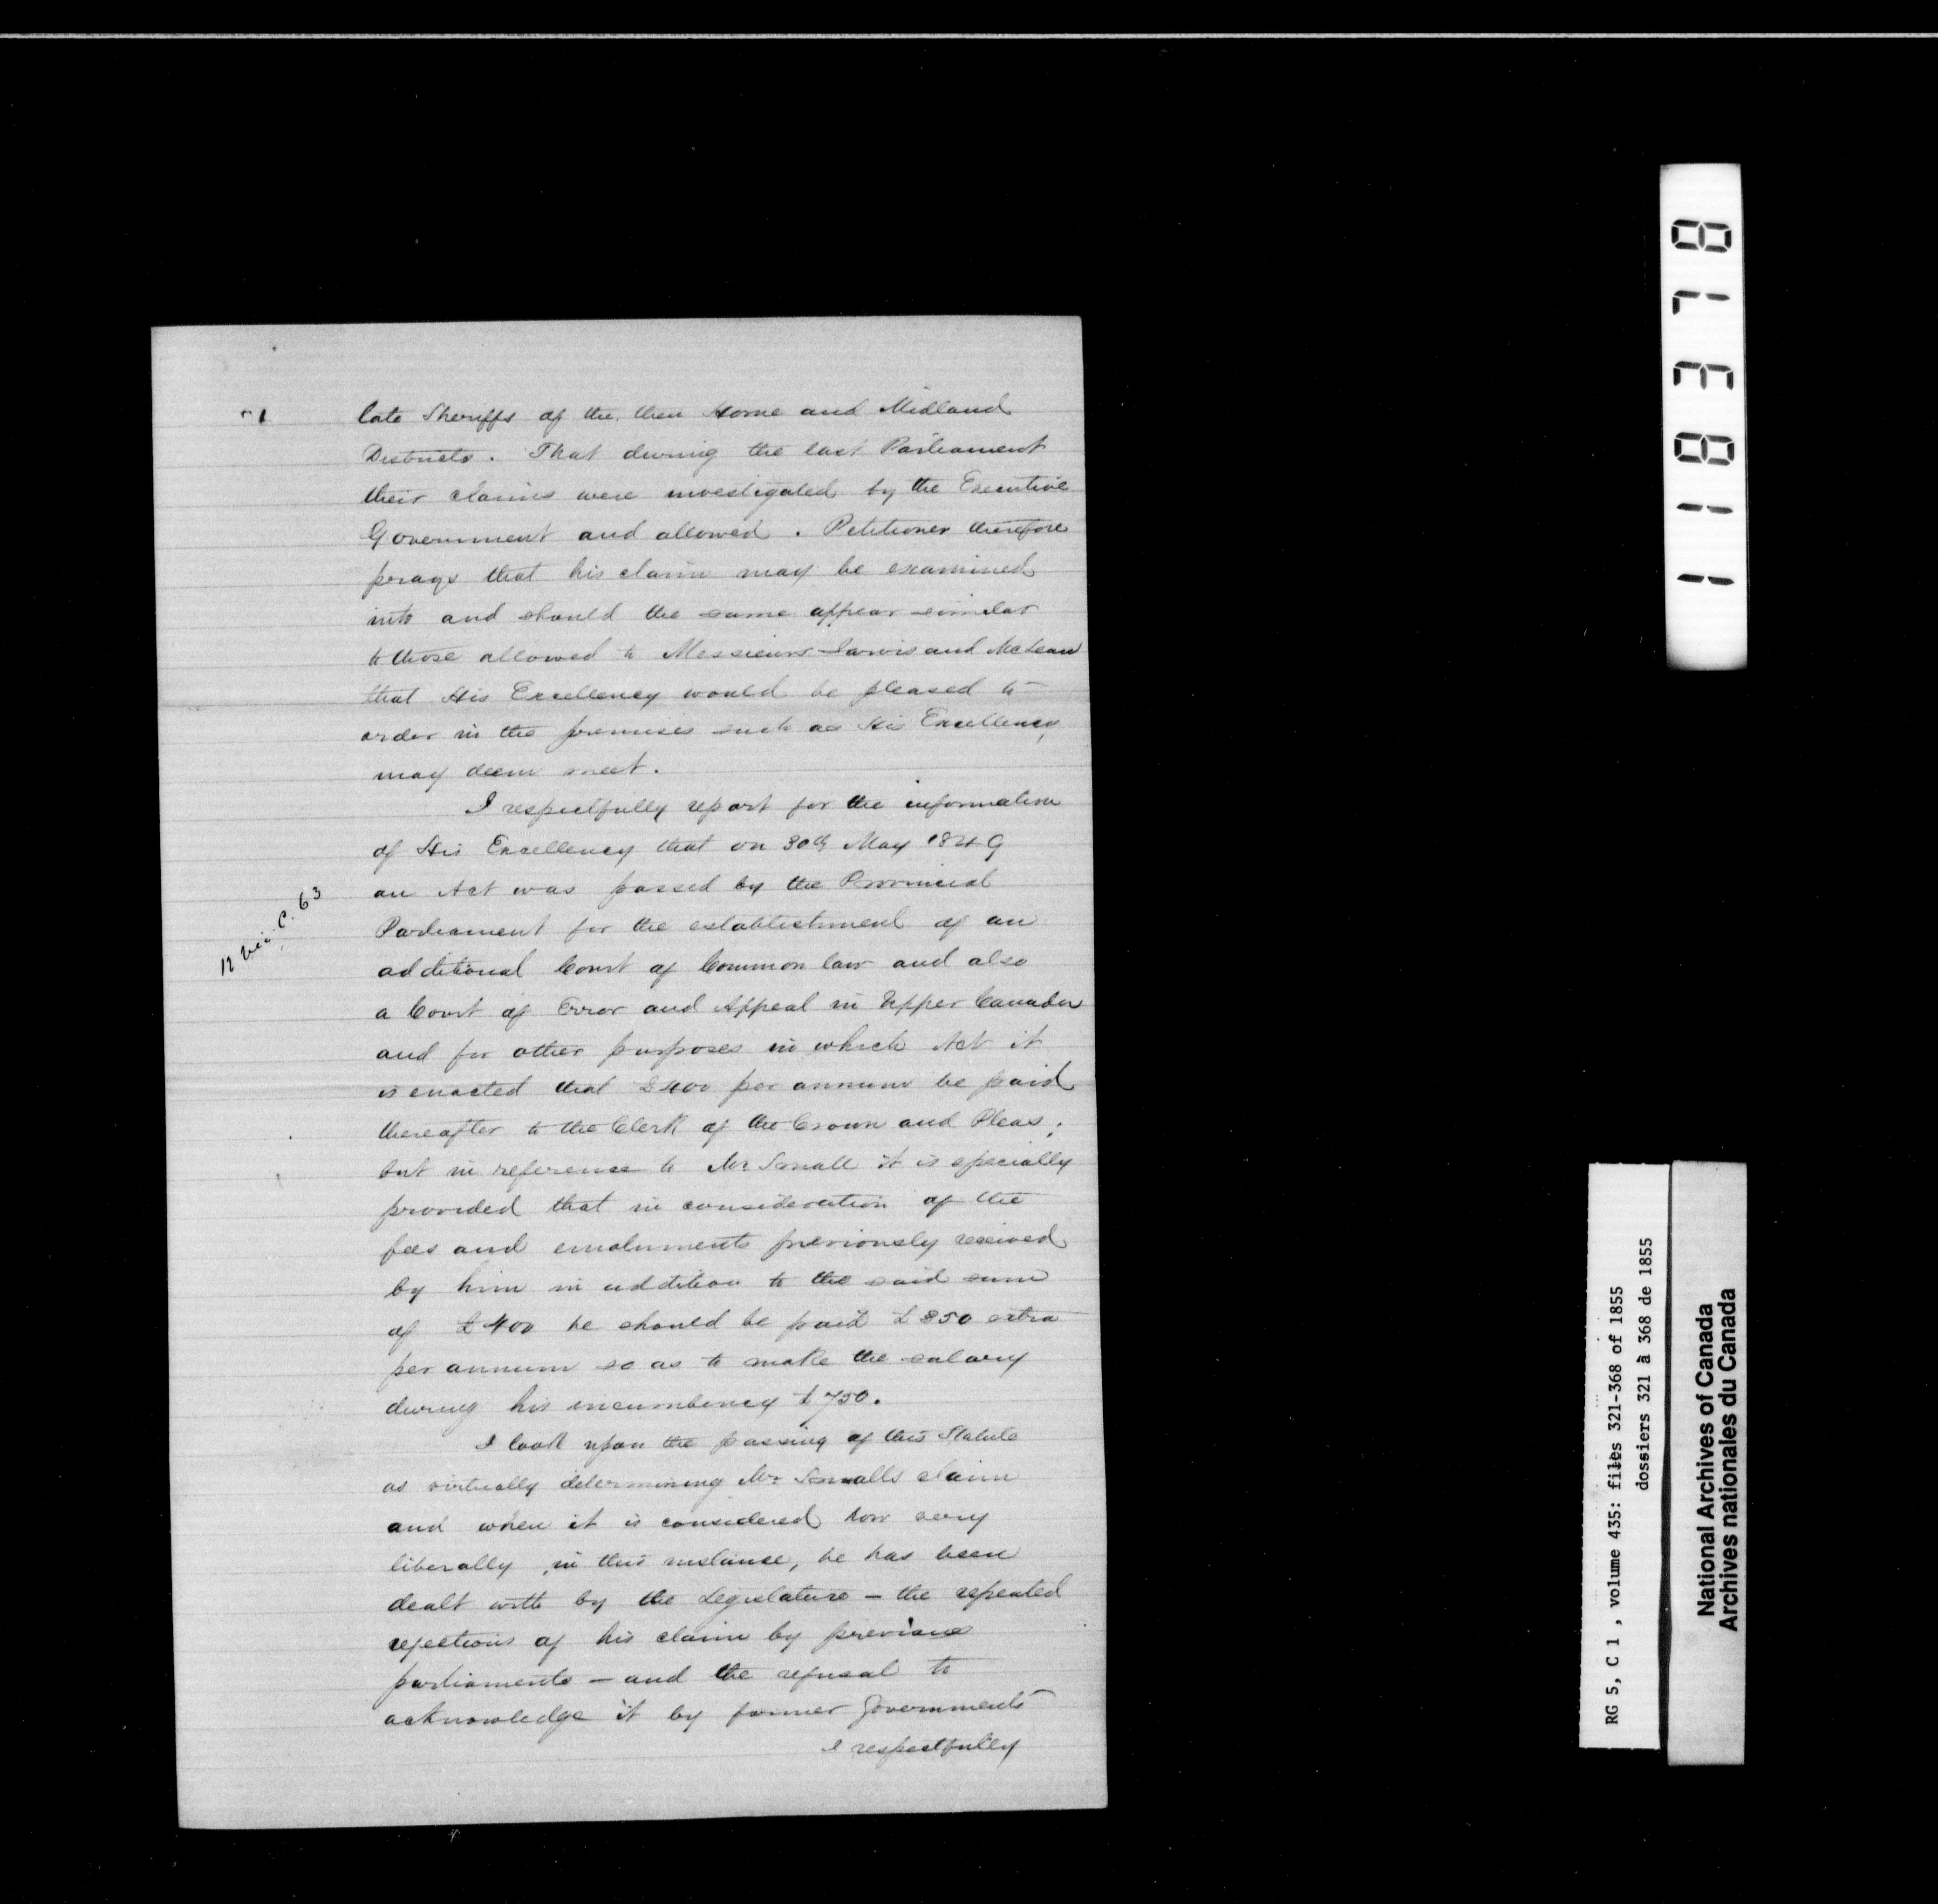 late Sheriffs of the then Home and Midland
Districts. That during the last Parliament
their claims were investigated by the Executive
Government and allowed. Petitioner therefore
prays that his claim may be examined
into and should the same appear similar
to those allowed to Messieurs Jarvis and McLean
that His Excellency would be pleased to
order in the premises such as His Excellency
may deem meet.
I respectfully report for the information
of His Excellency that on 30th May 1849
12 Vic: C. 63
an Act was passed by the Provincial
Parliament for the establishment of an
additional Court of Common law and also
a Court of Error and Appeal in Upper Canada
and for other purposes in which Act it
is enacted that £400 per annum be paid
thereafter to the Clerk of the Crown and Pleas;
but in reference to Mr Small it is specially
provided that in consideration of the
fees and emoluments previously received
by him in addition to the said sum
of £400 he should be paid £350 extra
per annum so as to make the salary
during his incumbency £750.
I look upon the passing of this Statute
as virtually determining Mr Smalls claim
and when it is considered how very
liberally, in this instance, he has been
dealt with by the Legislature - the repeated
rejections of his claim by previous
parliaments - and the refusal to
acknowledge it by former Governments
I respectfully
1 1 8 3 7 8
RG 5, C 1 , volume 435: files 321-368 of 1855
dossiers 321 à 368 de 1855
National Archives of Canada
Archives nationales du Canada